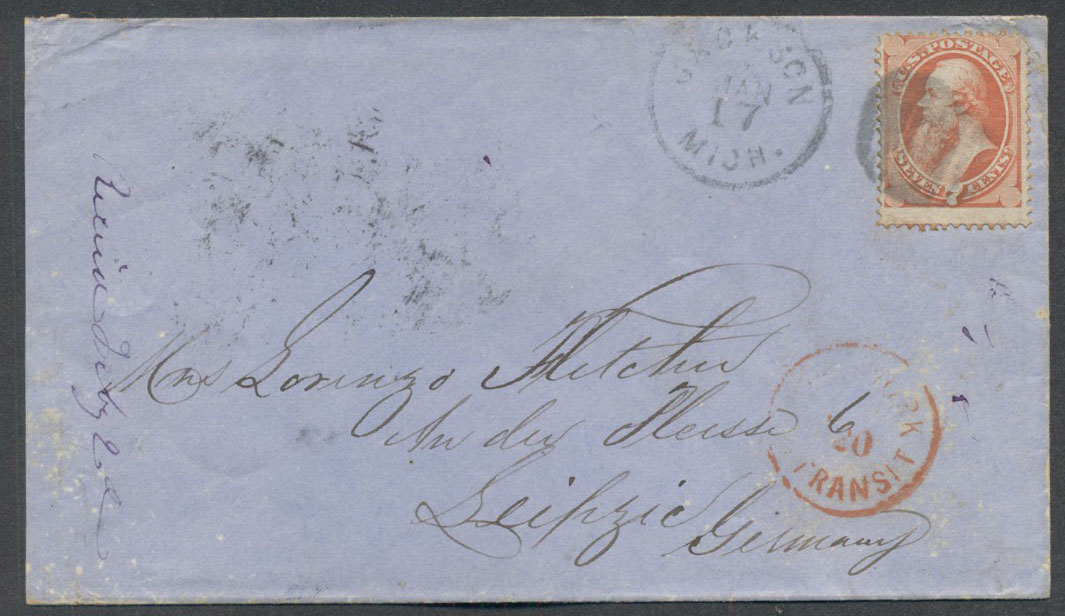 JACKSON
JAN
17
MICH.
U.S. POSTAGE
SEVEN 7 CENTS
Mrs Lorenzo Fletcher
An der Pleisse 6
Leipzic
Germany
YORK
20
TRANSIT